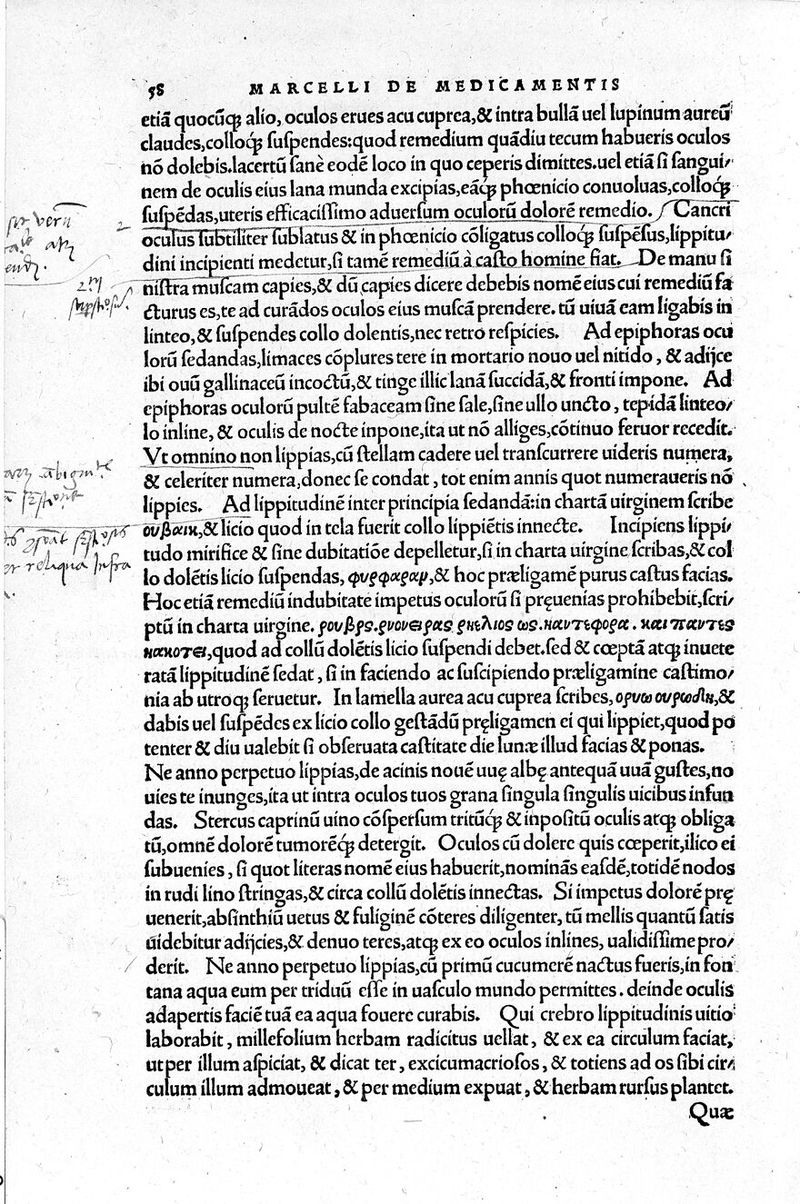 58 MARCELLI DE MEDICAMENTIS
etiā quocūq; alio, oculos erues acu cuprea, & intra bullā uel lupinum aureū
claudes, colloq́; suspendes: quod remedium quādiu tecum habueris oculos
nō dolebis. lacertū sanè eodē loco in quo ceperis dimittes. uel etiā si sangui⸗
nem de oculis eius lana munda excipias, eāq́; phœnicio conuoluas, colloq́;
suspēdas, uteris efficacissimo aduersum oculorū dolorē remedio. Cancri
oculus subtiliter sublatus & in phœnicio cōligatus colloq́; suspēsus, lippitu⸗
dini incipienti medetur, si tamē remediū à casto homine fiat. De manu si
nistra muscam capies, & dū capies dicere debebis nomē eius cui remediū fa
cturus es, te ad curādos oculos eius muscā prendere. tū uiuā eam ligabis in
linteo, & suspendes collo dolentis, nec retro respicies. Ad epiphoras ocu
lorū sedandas, limaces cōplures tere in mortario nouo uel nitido, & adijce
ibi ouū gallinaceū incoctū, & tinge illic lanā succidā, & fronti impone. Ad
epiphoras oculorū pultē fabaceam sine sale, sine ullo uncto, tepidā linteo⸗
lo inline, & oculis de nocte inpone, ita ut nō alliges, cōtinuo feruor recedit.
Vt omnino non lippias, cū stellam cadere uel transcurrere uideris numera,
& celeriter numera, donec se condat, tot enim annis quot numeraueris nō
lippies. Ad lippitudinē inter principia sedandā: in chartā uirginem scribe
ουβαικ, & licio quod in tela fuerit collo lippiētis innecte. Incipiens lippi⸗
tudo mirifice & sine dubitatiōe depelletur, si in charta uirgine scribas, & col
lo dolētis licio suspendas, φυρφαραμ, & hoc præligamē purus castus facias.
Hoc etiā remediū indubitate impetus oculorū si pręuenias prohibebit, scri⸗
ptū in charta uirgine. ρουβρς. ρνονειρας ρηελιος ως. καντεφορα. και παντες
κακοτει, quod ad collū dolētis licio suspendi debet. sed & cœptā atq; inuete
ratā lippitudinē sedat, si in faciendo ac suscipiendo præligamine castimo⸗
nia ab utroq; seruetur. In lamella aurea acu cuprea scribes, ορυω ουρωδη, &
dabis uel suspēdes ex licio collo gestādū pręligamen ei qui lippiet, quod po
tenter & diu ualebit si obseruata castitate die lunæ illud facias & ponas.
Ne anno perpetuo lippias, de acinis nouē uuę albę antequā uuā gustes, no
uies te inunges, ita ut intra oculos tuos grana singula singulis uicibus infun
das. Stercus caprinū uino cōspersum tritūq́; & inpositū oculis atq; obliga
tū, omnē dolorē tumorēq́; detergit. Oculos cū dolere quis cœperit, ilico ei
subuenies, si quot literas nomē eius habuerit, nominās easdē, totidē nodos
in rudi lino stringas, & circa collū dolētis innectas. Si impetus dolorē prę
uenerit, absinthiū uetus & fuliginē cōteres diligenter, tū mellis quantū satis
uidebitur adijcies, & denuo teres, atq; ex eo oculos inlines, ualidissime pro⸗
derit. Ne anno perpetuo lippias, cū primū cucumerē nactus fueris, in fon
tana aqua eum per triduū esse in uasculo mundo permittes. deinde oculis
adapertis faciē tuā ea aqua fouere curabis. Qui crebro lippitudinis uitio
laborabit, millefolium herbam radicitus uellat, & ex ea circulum faciat,
ut per illum aspiciat, & dicat ter, excicumacriosos, & totiens ad os sibi cir⸗
culum illum admoueat, & per medium expuat, & herbam rursus plantet.
Quæ